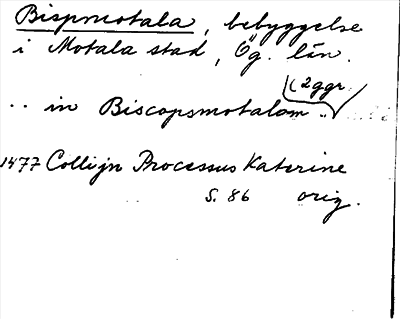 Bispmotala, bebyggelse
i Motala stad, Ög. län.
(2ggr.
.. in Biscopsmotalom ..
1477 Collijn Processus Katerine
s. 86 orig.